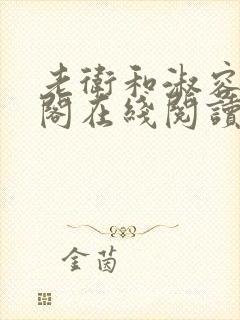 老衛和淑容
閣在綫閱讀
金茵